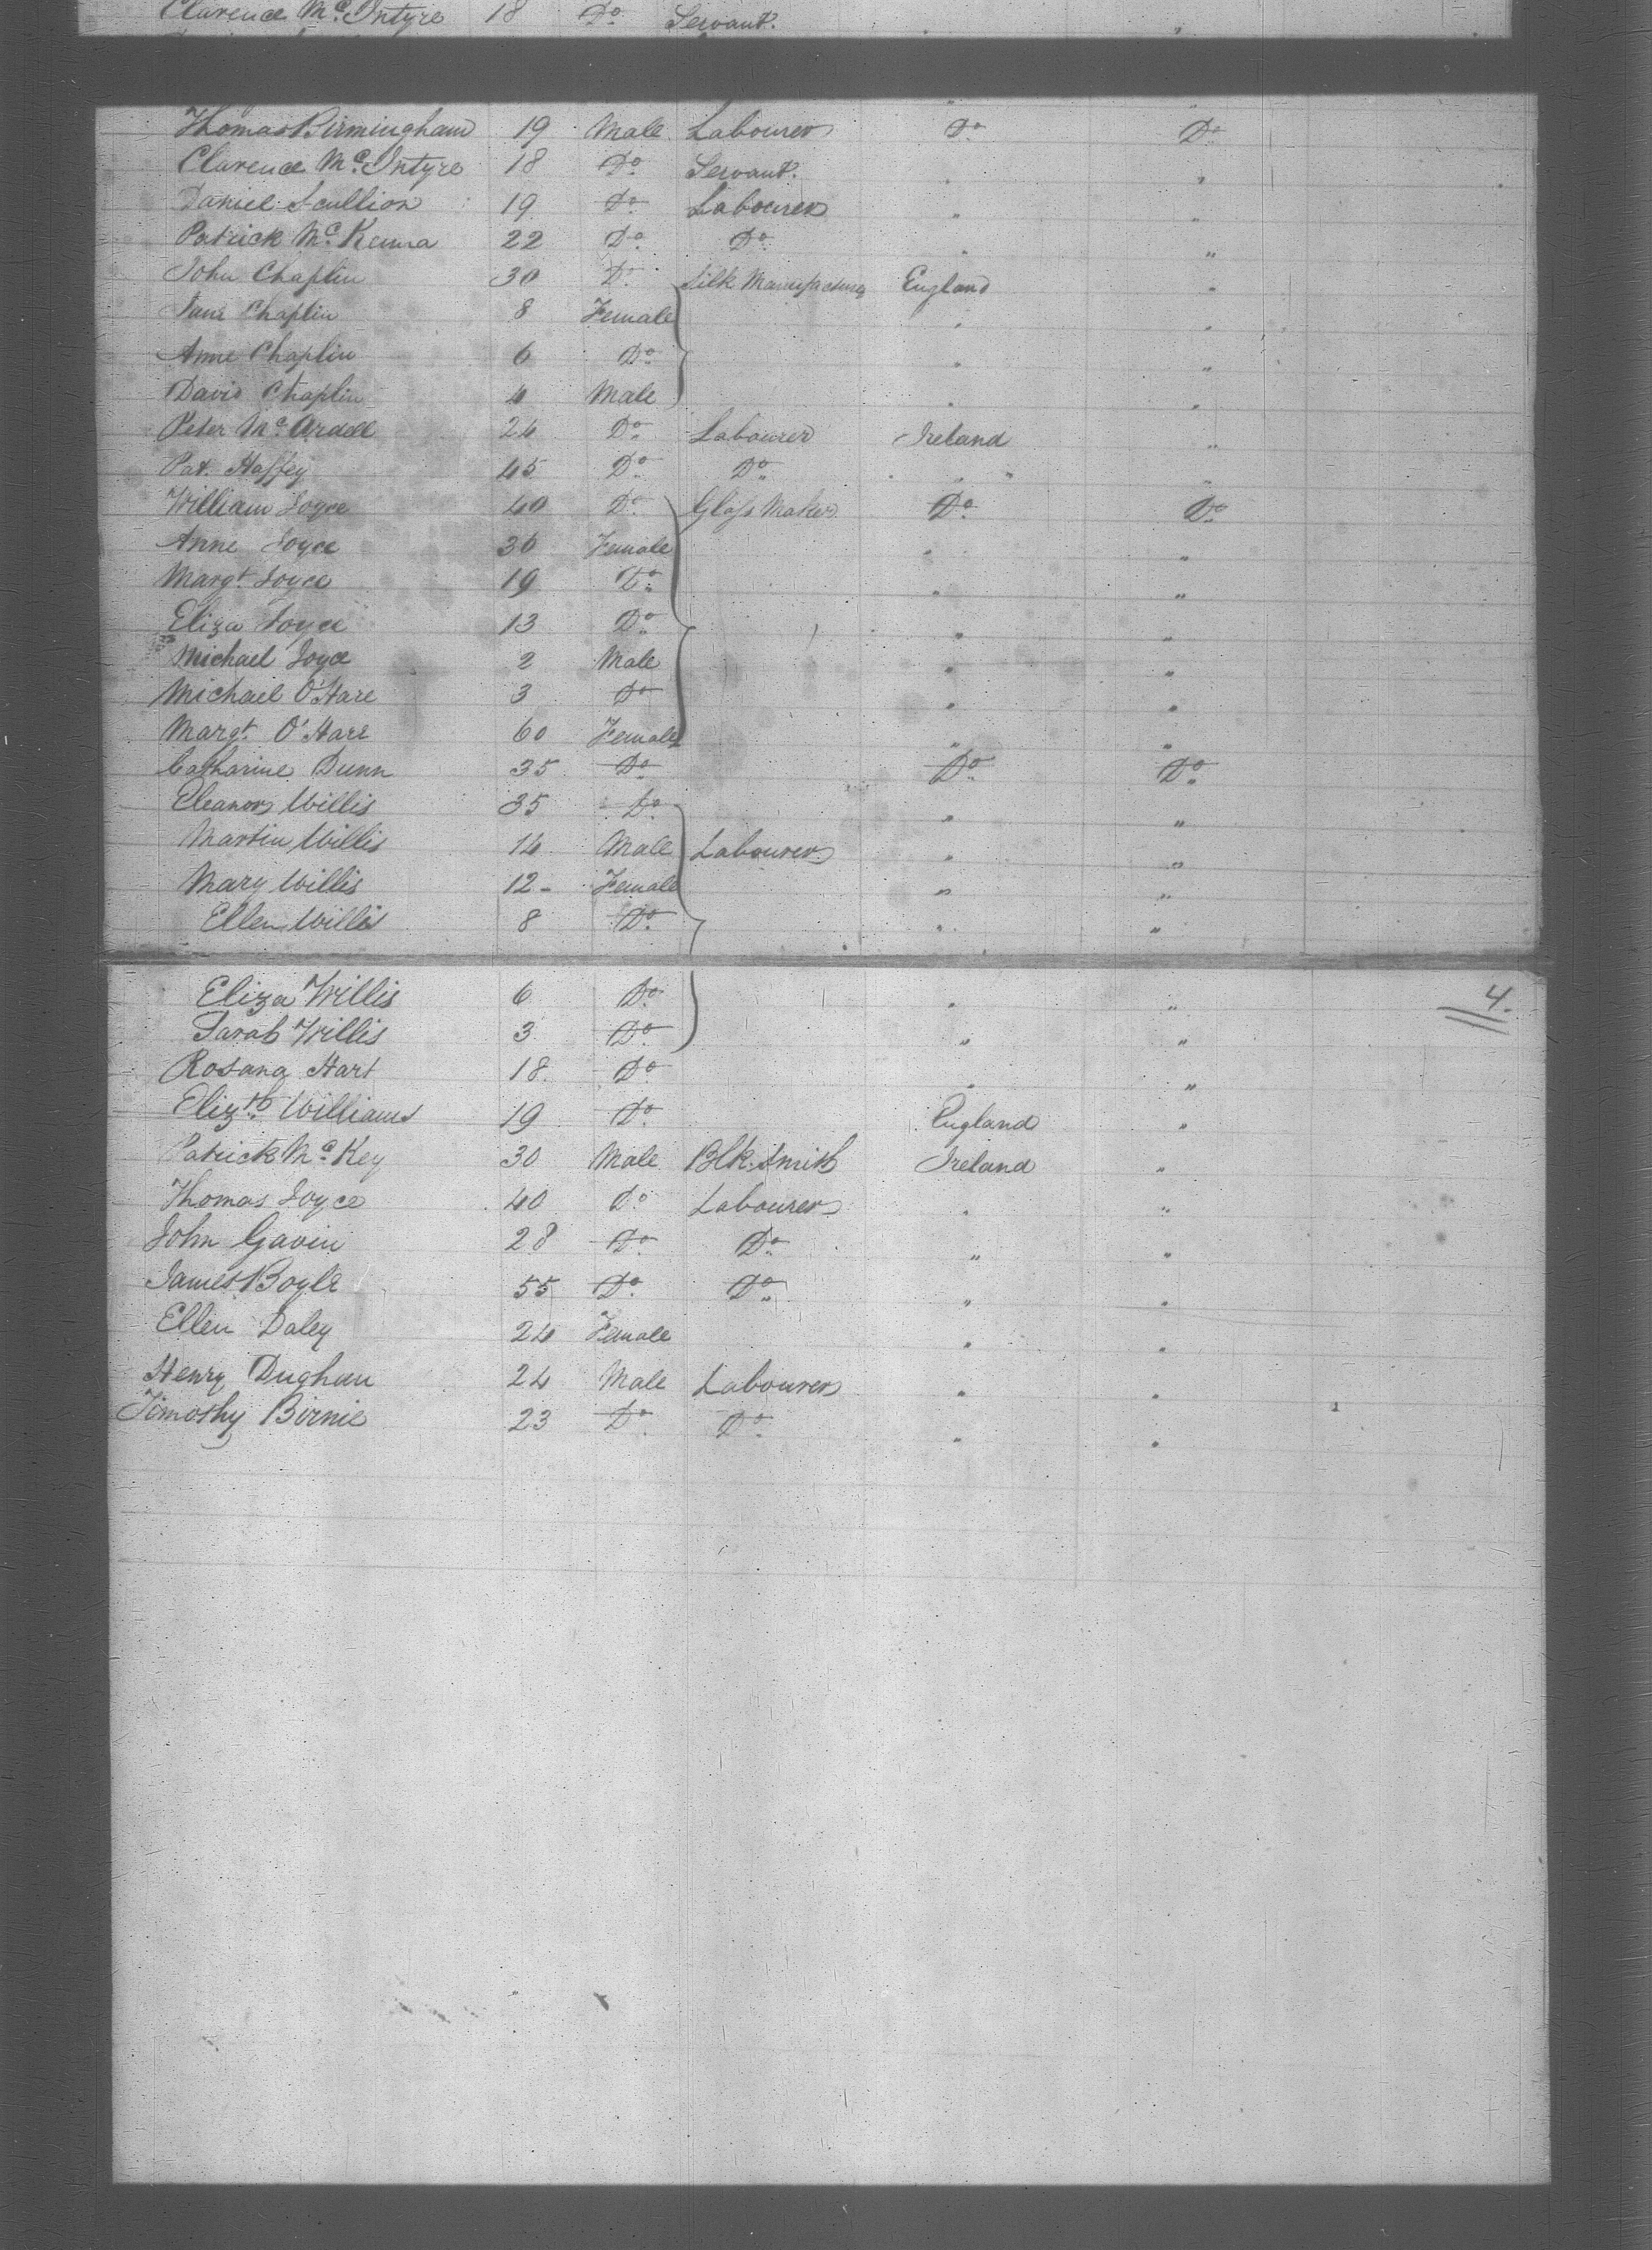 Clarence Mc. Intyre 18 Do. Servant. " "
Thomas Birmingham 19 Male Labourer Do. Do.
Clarence Mc. Intyre 18 Do. Servant. " "
Daniel Scullion 19 Do. Labourer " "
Patrick Mc. Kenna 22 Do. Do. " "
John Chaplin 30 Do. Silk Manufacturer England "
Jane Chaplin 8 Female " "
Anne Chaplin 6 Do. " "
David Chaplin 4 Male " "
Peter Mc. Ardell 24 Do. Labourer Ireland "
Pat. Haffey 45 Do. Do. " "
William Joyce 40 Do. Glass Maker Do. Do.
Anne Joyce 36 Female " "
Margt. Joyce 19 Do. " "
Eliza Joyce 13 Do. " "
Michael Joyce 2 Male " "
Michael O'Hare 3 Do " "
Margt. O'Hare 60 Female " "
Catharine Dunn 35 Do. Do. Do.
Eleanor Willis 35 Do. " "
Martin Willis 14 Male Labourer " "
Mary Willis 12 - Female " "
Ellen Willis 8 Do. " "
Eliza Willis 6 Do. " " 4.
Sarah Willis 3 Do. " "
Rosana Hart 18. Do. " "
Elizth. Williams 19 Do. England "
Patrick Mc. Key 30 Male Blk. Smith Ireland "
Thomas Joyce 40 Do Labourer " "
John Gavin 28 Do. Do. " "
James Boyle 55 Do. Do. " "
Ellen Daley 24 Female " "
Henry Dughan 24 Male Labourer " "
Timothy Birnie 23 Do. Do. " "